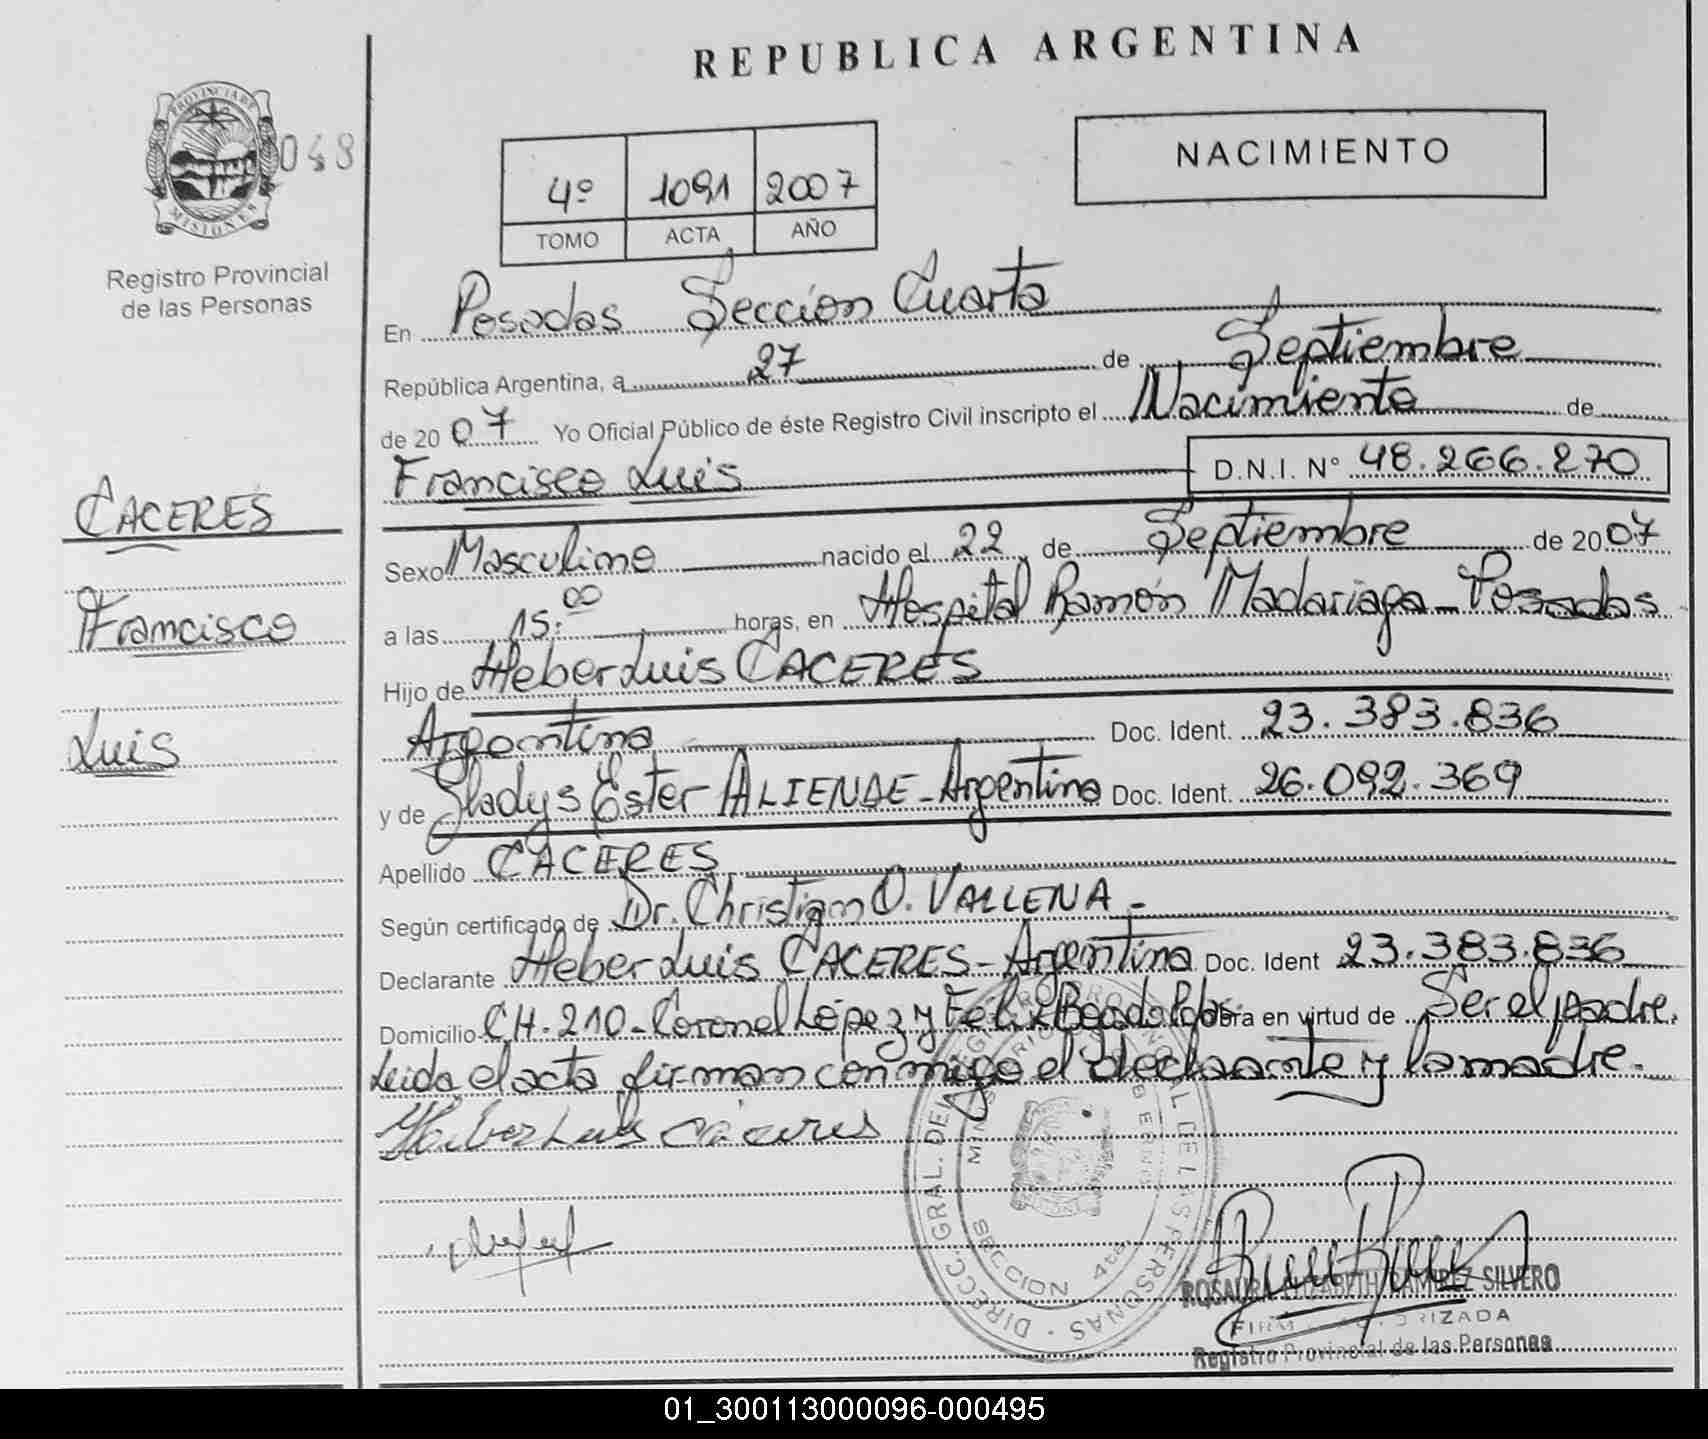 REPUBLICA ARGENTINA
PROVINCIA DE MISIONES
048
Registro Provincial
de las Personas
4º 1091 2007
TOMO ACTA AÑO
NACIMIENTO
En Posadas Sección Cuarta
República Argentina, a 27 de Septiembre
de 2007 Yo Oficial Público de éste Registro Civil inscripto el Nacimiento de
Francisco Luis D.N.I. Nº 48.266.270
CACERES
Francisco
Luis
Sexo Masculino nacido el 22 de Septiembre de 2007
a las 15:00 horas, en Hospital Ramón Madariaga - Posadas
Hijo de Heber Luis CACERES
Argentina Doc. Ident. 23.383.836
y de Gladys Ester ALIENDE - Argentina Doc. Ident. 26.092.369
Apellido CACERES
Según certificado de Dr. Christian O. VALLENA -
Declarante Heber Luis CACERES - Argentina Doc. Ident 23.383.836
Domicilio CH. 210 - Coronel López y Félix obra en virtud de Ser el padre.
Leida el acta firman conmigo el declarante y la madre.
Heber Luis Cáceres
DIRECC. GRAL. DEL REGISTRO PROVINCIAL DE LAS PERSONAS
SECCION 4ta.
ROSAURA ELIZABETH RAMIREZ SILVERO
FIRMA AUTORIZADA
Registro Provincial de las Personas
01_300113000096-000495